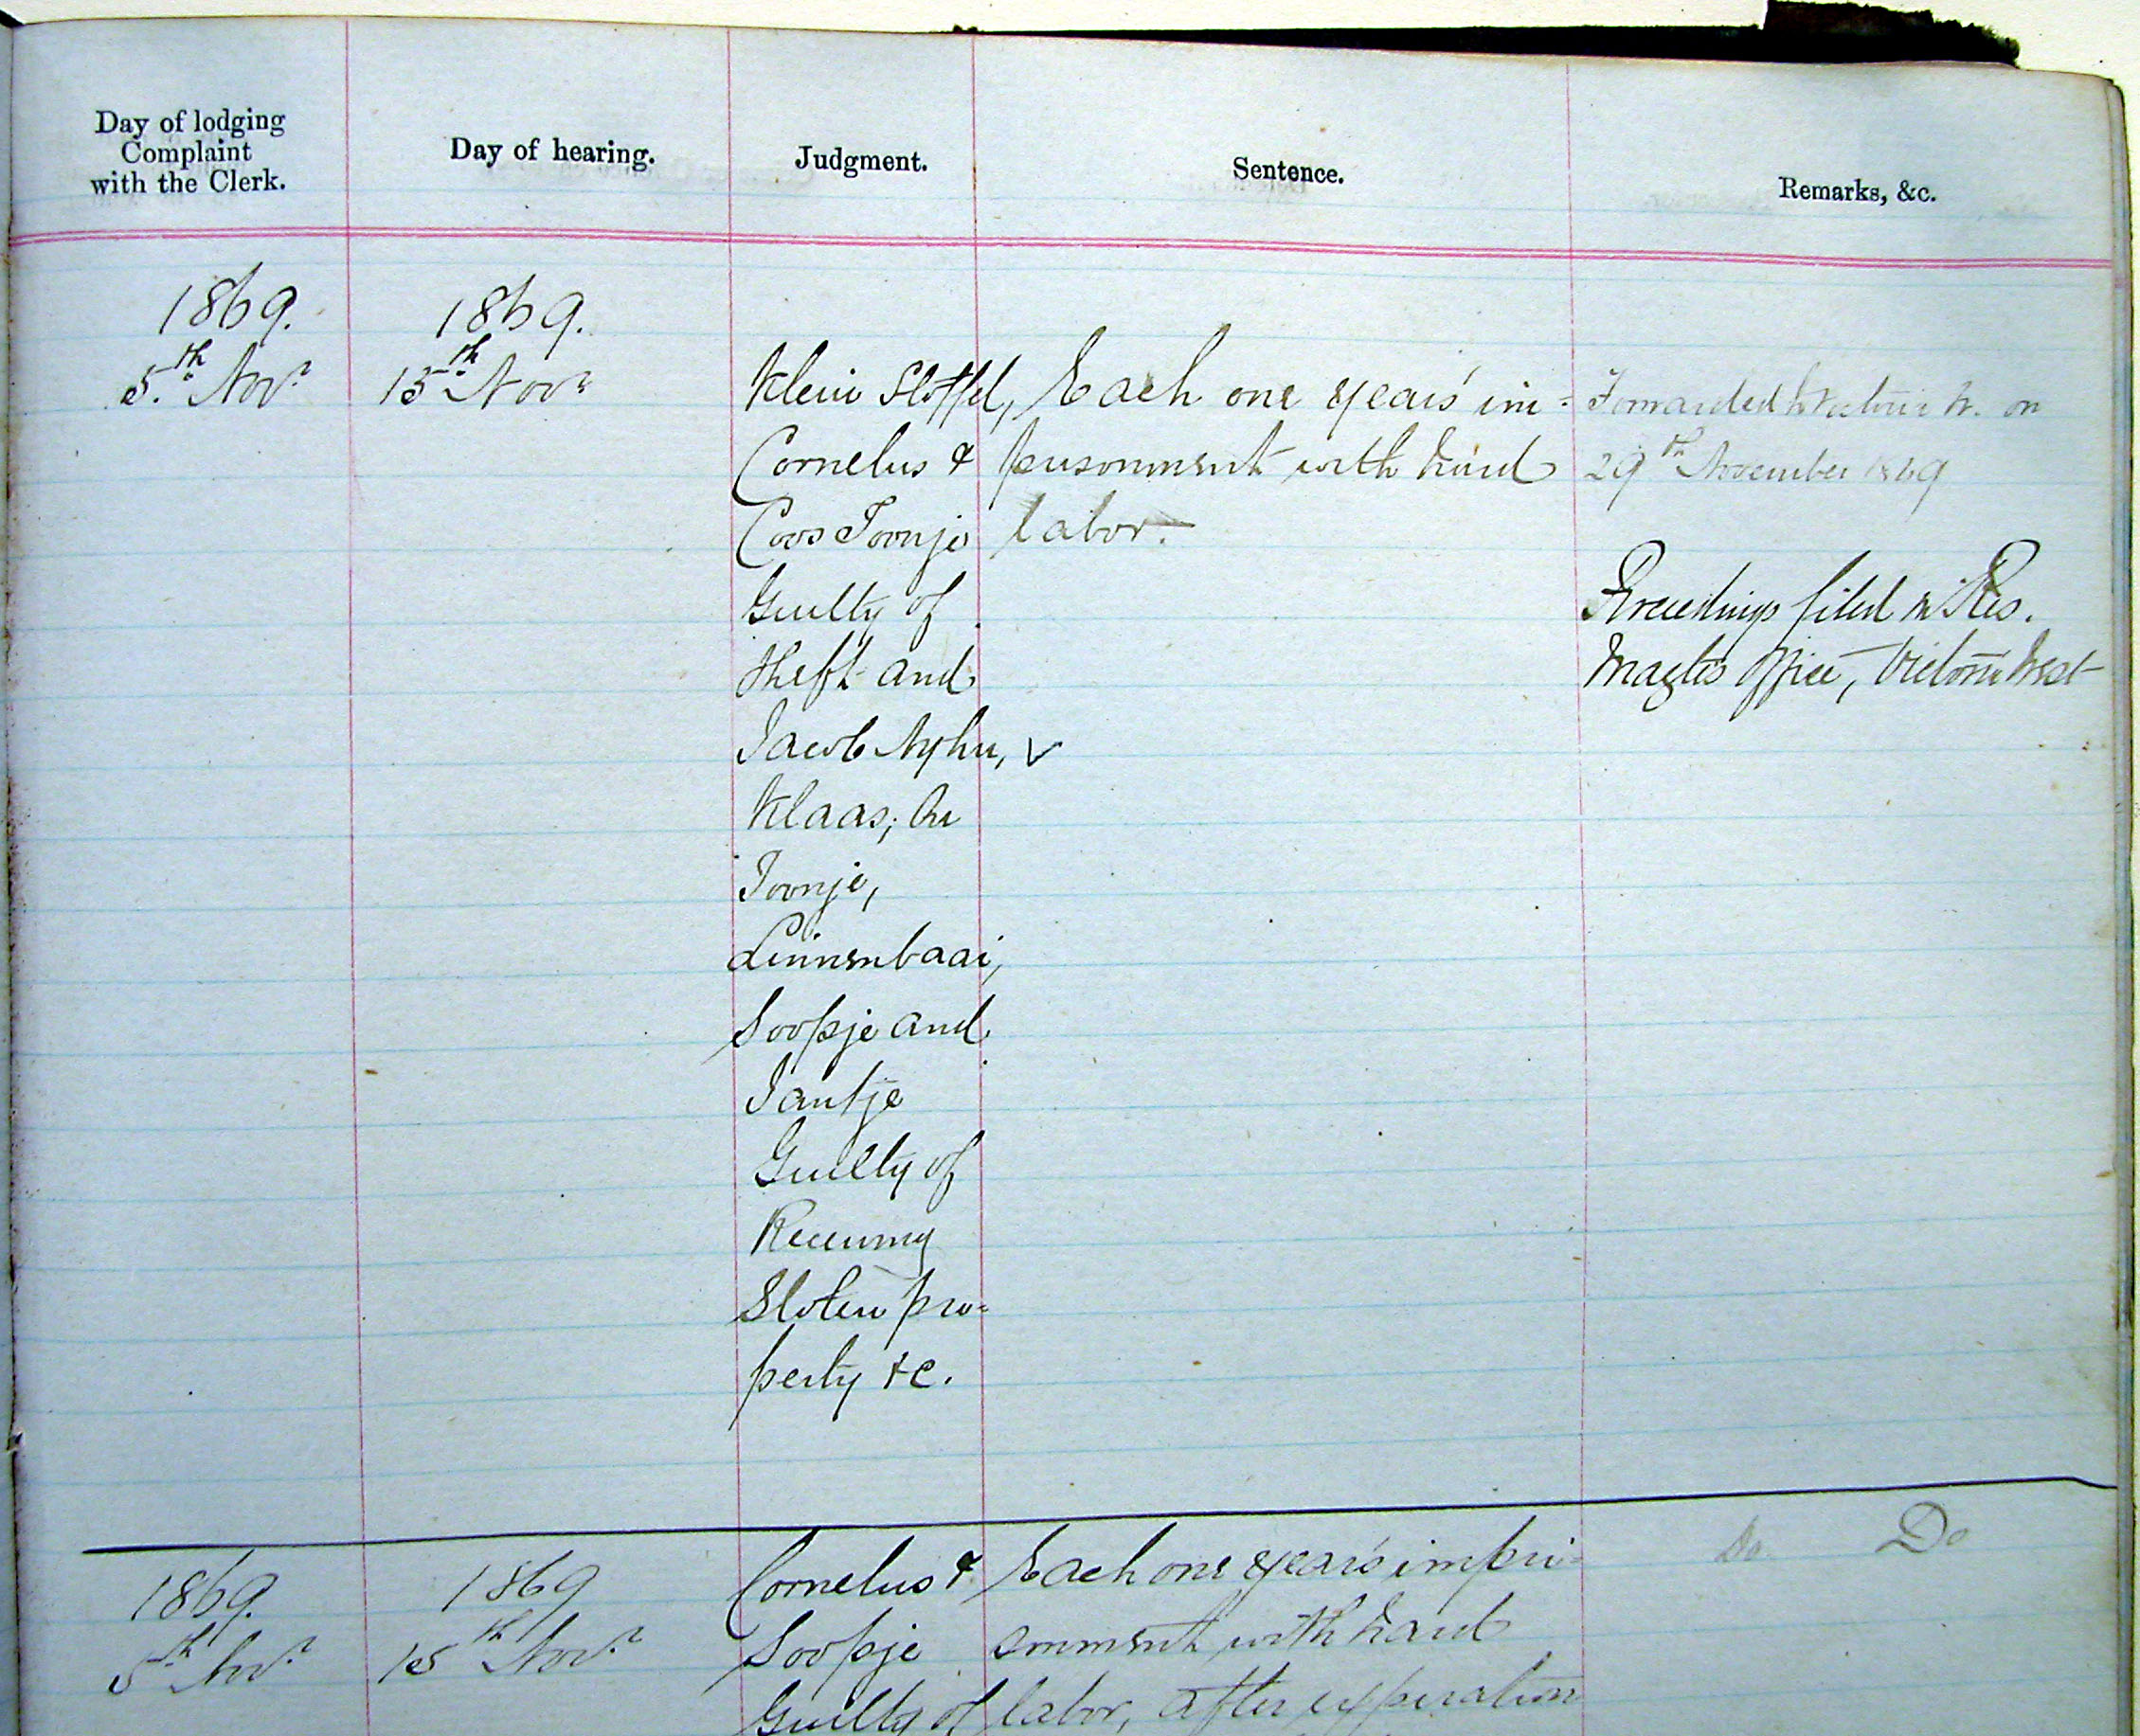 Day of lodging
Complaint
with the Clerk.
Day of hearing.
Judgment.
Sentence.
Remarks, &c.
1869.
5.th Novr
1869.
15th Novr
Klein Stoffel,
Cornelus &
Coos Toonje
Guilty of
theft and
Jacob
Klaas;
Toonje,
Linnenbaai,
Soopje and
Jantje
Guilty of
Receiving
Stolen pro=
perty &c.
Each one year's im=
prisonment with hard
labor.
Forwarded to Victoria W. on
29th November 1869
Proceedings filed in Res.
Magtes Office, Victoria West
1869.
5th Novr
1869
15th Novr
Cornelus &
Soopje
Guilty of
Each one year's impri=
sonment with hard
labor, after expiration
Do Do